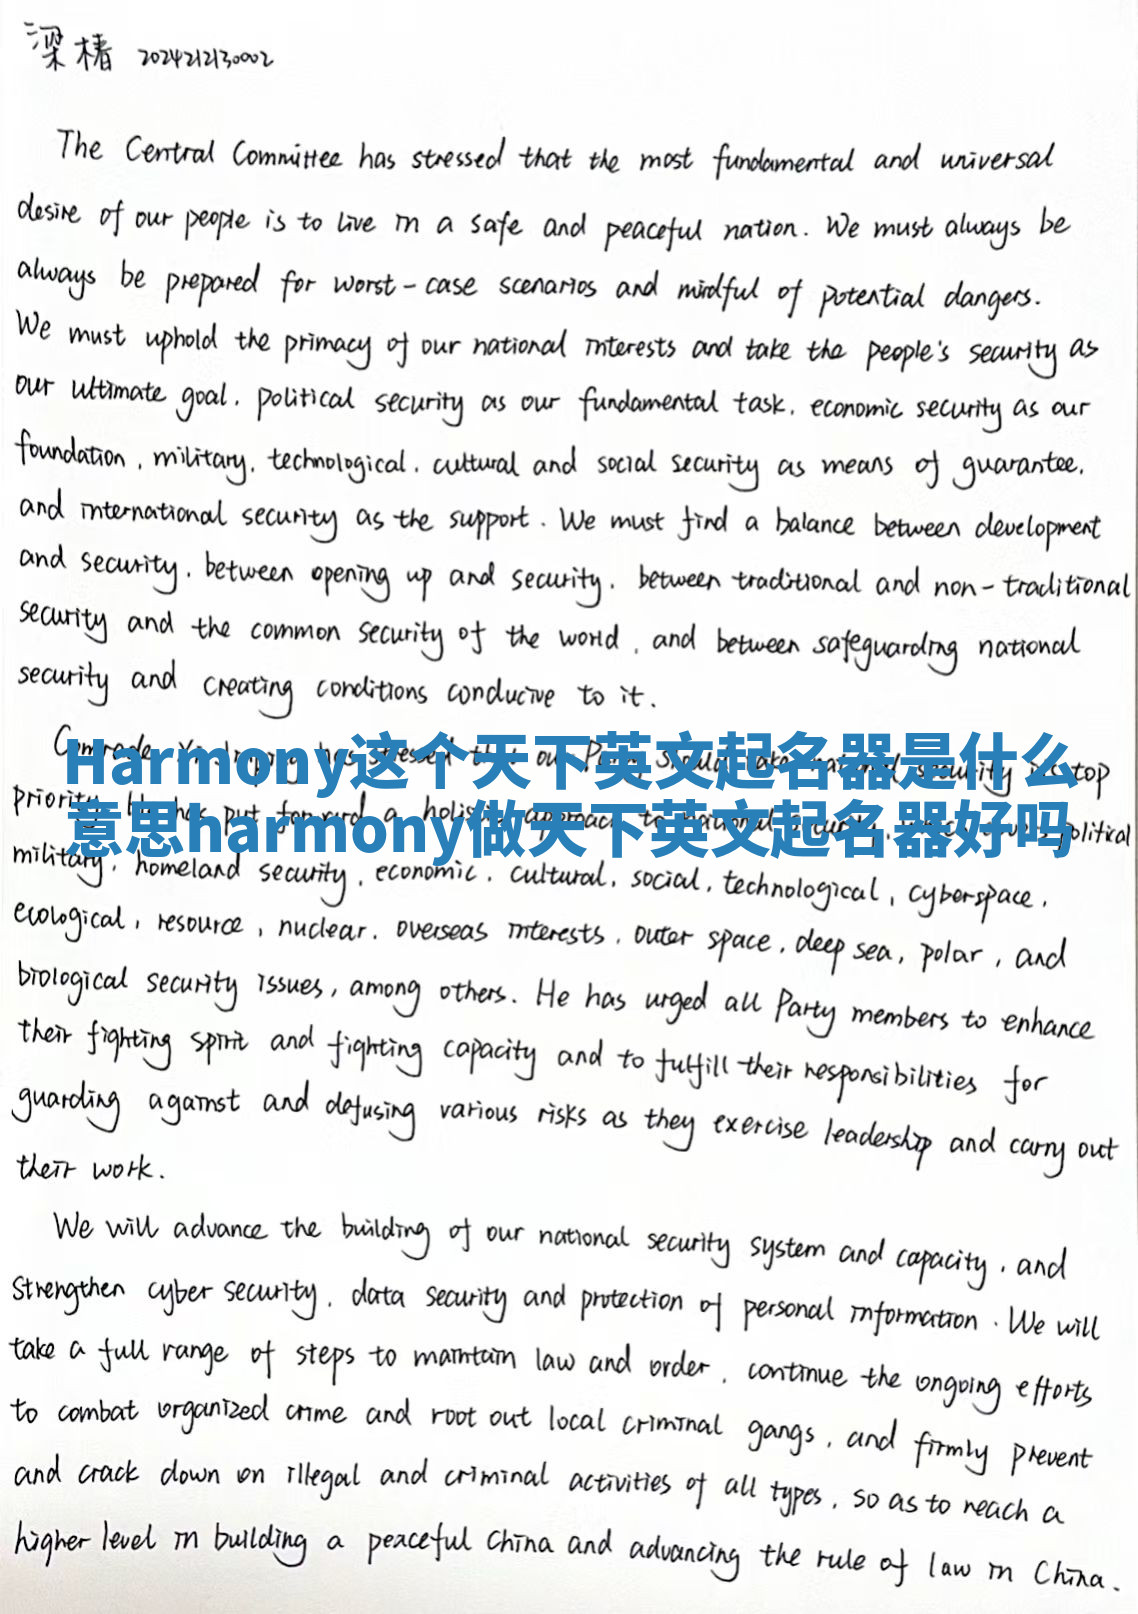 梁椿 2024212130002
The Central Committee has stressed that the most fundamental and universal
desire of our people is to live in a safe and peaceful nation. We must always be
always be prepared for worst-case scenarios and mindful of potential dangers.
We must uphold the primacy of our national interests and take the people's security as
our ultimate goal, political security as our fundamental task, economic security as our
foundation, military, technological, cultural and social security as means of guarantee,
and international security as the support. We must find a balance between development
and security, between opening up and security, between traditional and non-traditional
security and the common security of the world, and between safeguarding national
security and creating conditions conducive to it.
Comrade has stressed that our Party should take national security its top
Harmony这个天下英文起名器是什么
priority. He has put forward a holistic approach to national security, political
意思harmony做天下英文起名器好吗
military, homeland security, economic, cultural, social, technological, cyberspace,
ecological, resource, nuclear, overseas interests, outer space, deep sea, polar, and
biological security issues, among others. He has urged all Party members to enhance
their fighting spirit and fighting capacity and to fulfill their responsibilities for
guarding against and defusing various risks as they exercise leadership and carry out
their work.
We will advance the building of our national security system and capacity, and
strengthen cyber security, data security and protection of personal information. We will
take a full range of steps to maintain law and order, continue the ongoing efforts
to combat organized crime and root out local criminal gangs, and firmly prevent
and crack down on illegal and criminal activities of all types, so as to reach a
higher level in building a peaceful China and advancing the rule of law in China.